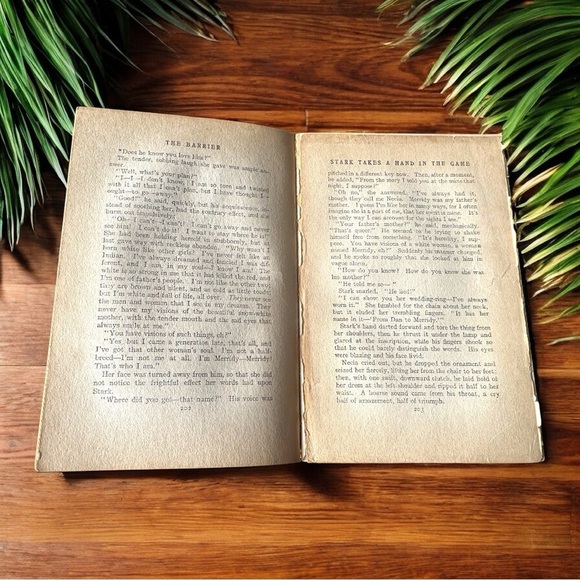 THE BARRIER
"Does he know you love him?"
The tender, sobbing laugh she gave was ample answer.
"Well, what's your plan?"
"I—I—I don't know. I am so torn and twisted
with it all that I can't plan, but I have thought I
ought—to go—away."
"Good!" he said, quickly, but his acquiescence, instead
of soothing her, had the contrary effect, and she
burst out impulsively:
"Oh—I can't—I can't! I can't go away and never
see him! I can't do it! I want to stay where he is!"
She had been holding herself in stubbornly, but at
last gave way with reckless abandon. "Why wasn't I
born white like other girls? I've never felt like an
Indian. I've always dreamed and fancied I was different,
and I am, in my soul—I know I am! The
white is so strong in me that it has killed the red, and
I'm one of father's people. I'm not like the other two;
they are brown and silent, and as cold as little toads;
but I'm white and full of life, all over. They never see
the men and women that I see in my dreams. They
never have my visions of the beautiful snow-white
mother, with the tender mouth and the sad eyes that
always smile at me."
"You have visions of such things, eh?"
"Yes, but I came a generation late, that's all, and
I've got that other woman's soul. I'm not a half-
breed—I'm not me at all. I'm Merridy—Merridy!
That's who I am."
Her face was turned away from him, so that she did
not notice the frightful effect her words had upon
Stark.
"Where did you get—that name?" His voice was
202
STARK TAKES A HAND IN THE GAME
pitched in a different key now. Then, after a moment,
he added, "From the story I told you at the mine that
night, I suppose?"
"Oh no," she answered. "I've always had it,
though they call me Necia. Merridy was my father's
mother. I guess I'm like her in many ways, for I often
imagine she is a part of me, that her spirit is mine. It's
the only way I can account for the sights I see."
"Your father's mother?" he said, mechanically.
"That's queer." He seemed to be trying to shake
himself free from something. "It's heredity, I suppose.
You have visions of a white woman, a woman
named Merridy, eh?" Suddenly his manner changed,
and he spoke so roughly that she looked at him in
vague alarm.
"How do you know? How do you know she was
his mother?"
"He told me so—"
Stark snarled. "He lied!"
"I can show you her wedding-ring—I've always
worn it." She fumbled for the chain about her neck,
but it eluded her trembling fingers. "It has her
name in it—'From Dan to Merridy.'"
Stark's hand darted forward and tore the thing from
her shoulders, then he thrust it under the lamp and
glared at the inscription, while his fingers shook so
that he could barely distinguish the words. His eyes
were blazing and his face livid.
Necia cried out, but he dropped the ornament and
seized her fiercely, lifting her from the chair to her feet;
then, with one swift, downward clutch, he laid hold of
her dress at the left shoulder and ripped it half to her
waist. A hoarse sound came from his throat, a cry
half of amazement, half of triumph.
203